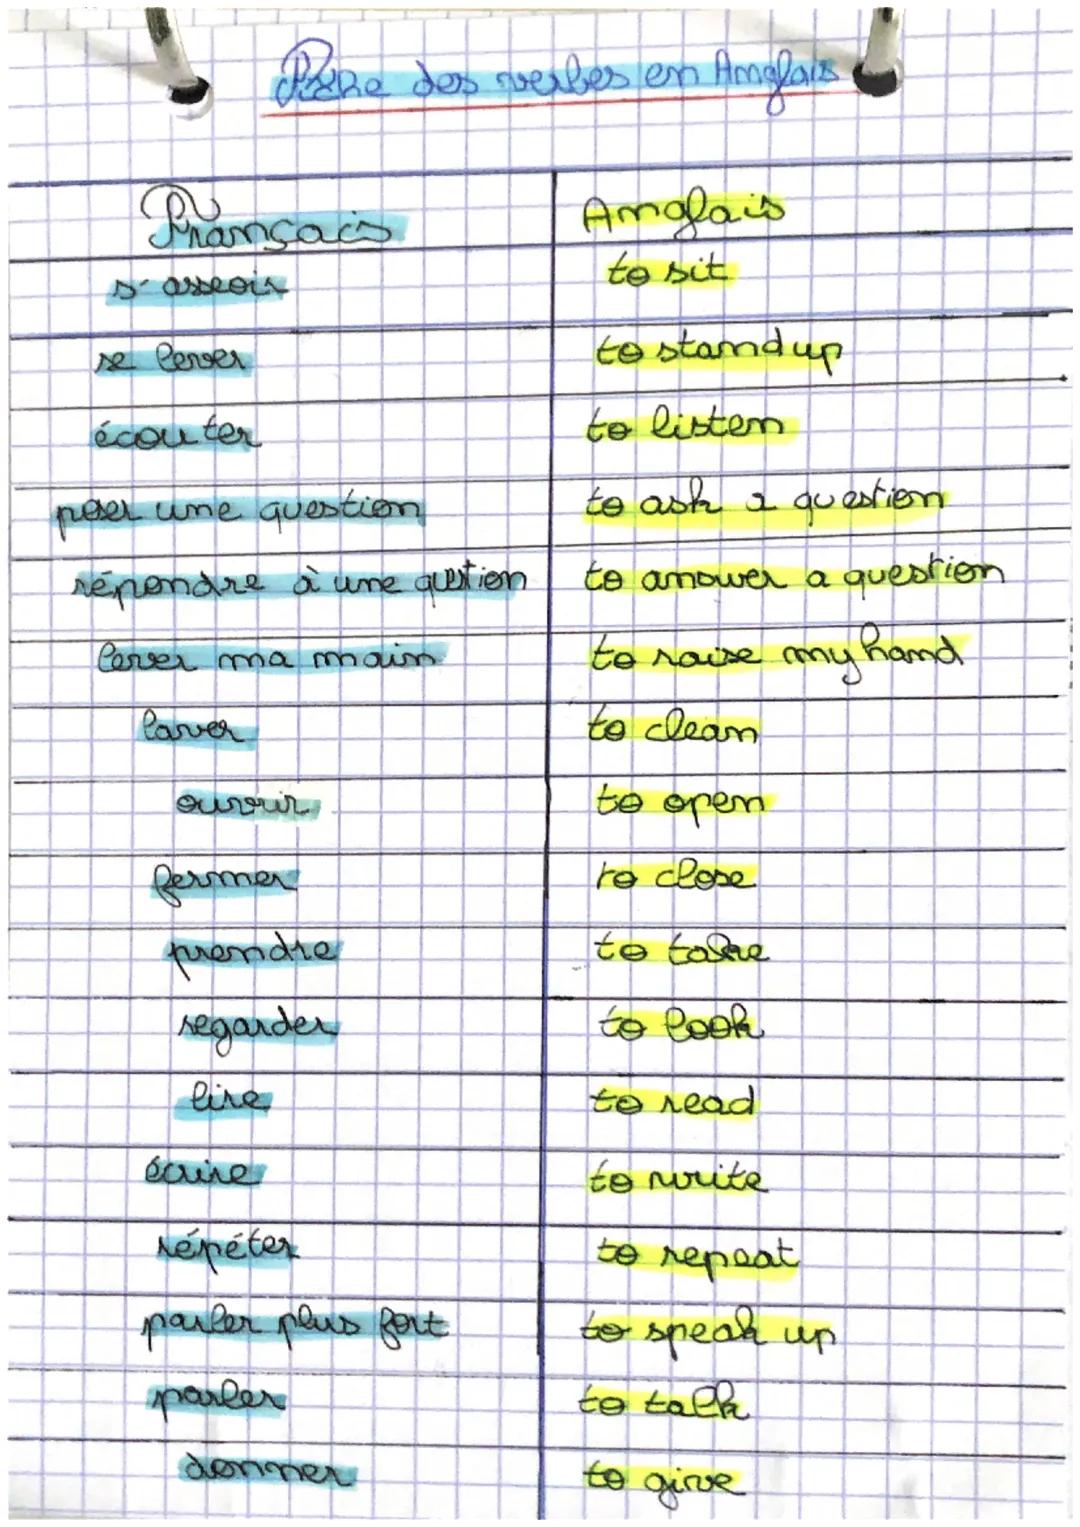 Fiche des verbes en Anglais
Français Anglais
s'asseoir to sit
se lever to stand up
écouter to listen
poser une question to ask a question
répondre à une question to answer a question
lever ma main to raise my hand
laver to clean
ouvrir to open
fermer to close
prendre to take
regarder to look
lire to read
écrire to write
répéter to repeat
parler plus fort to speak up
parler to talk
donner to give